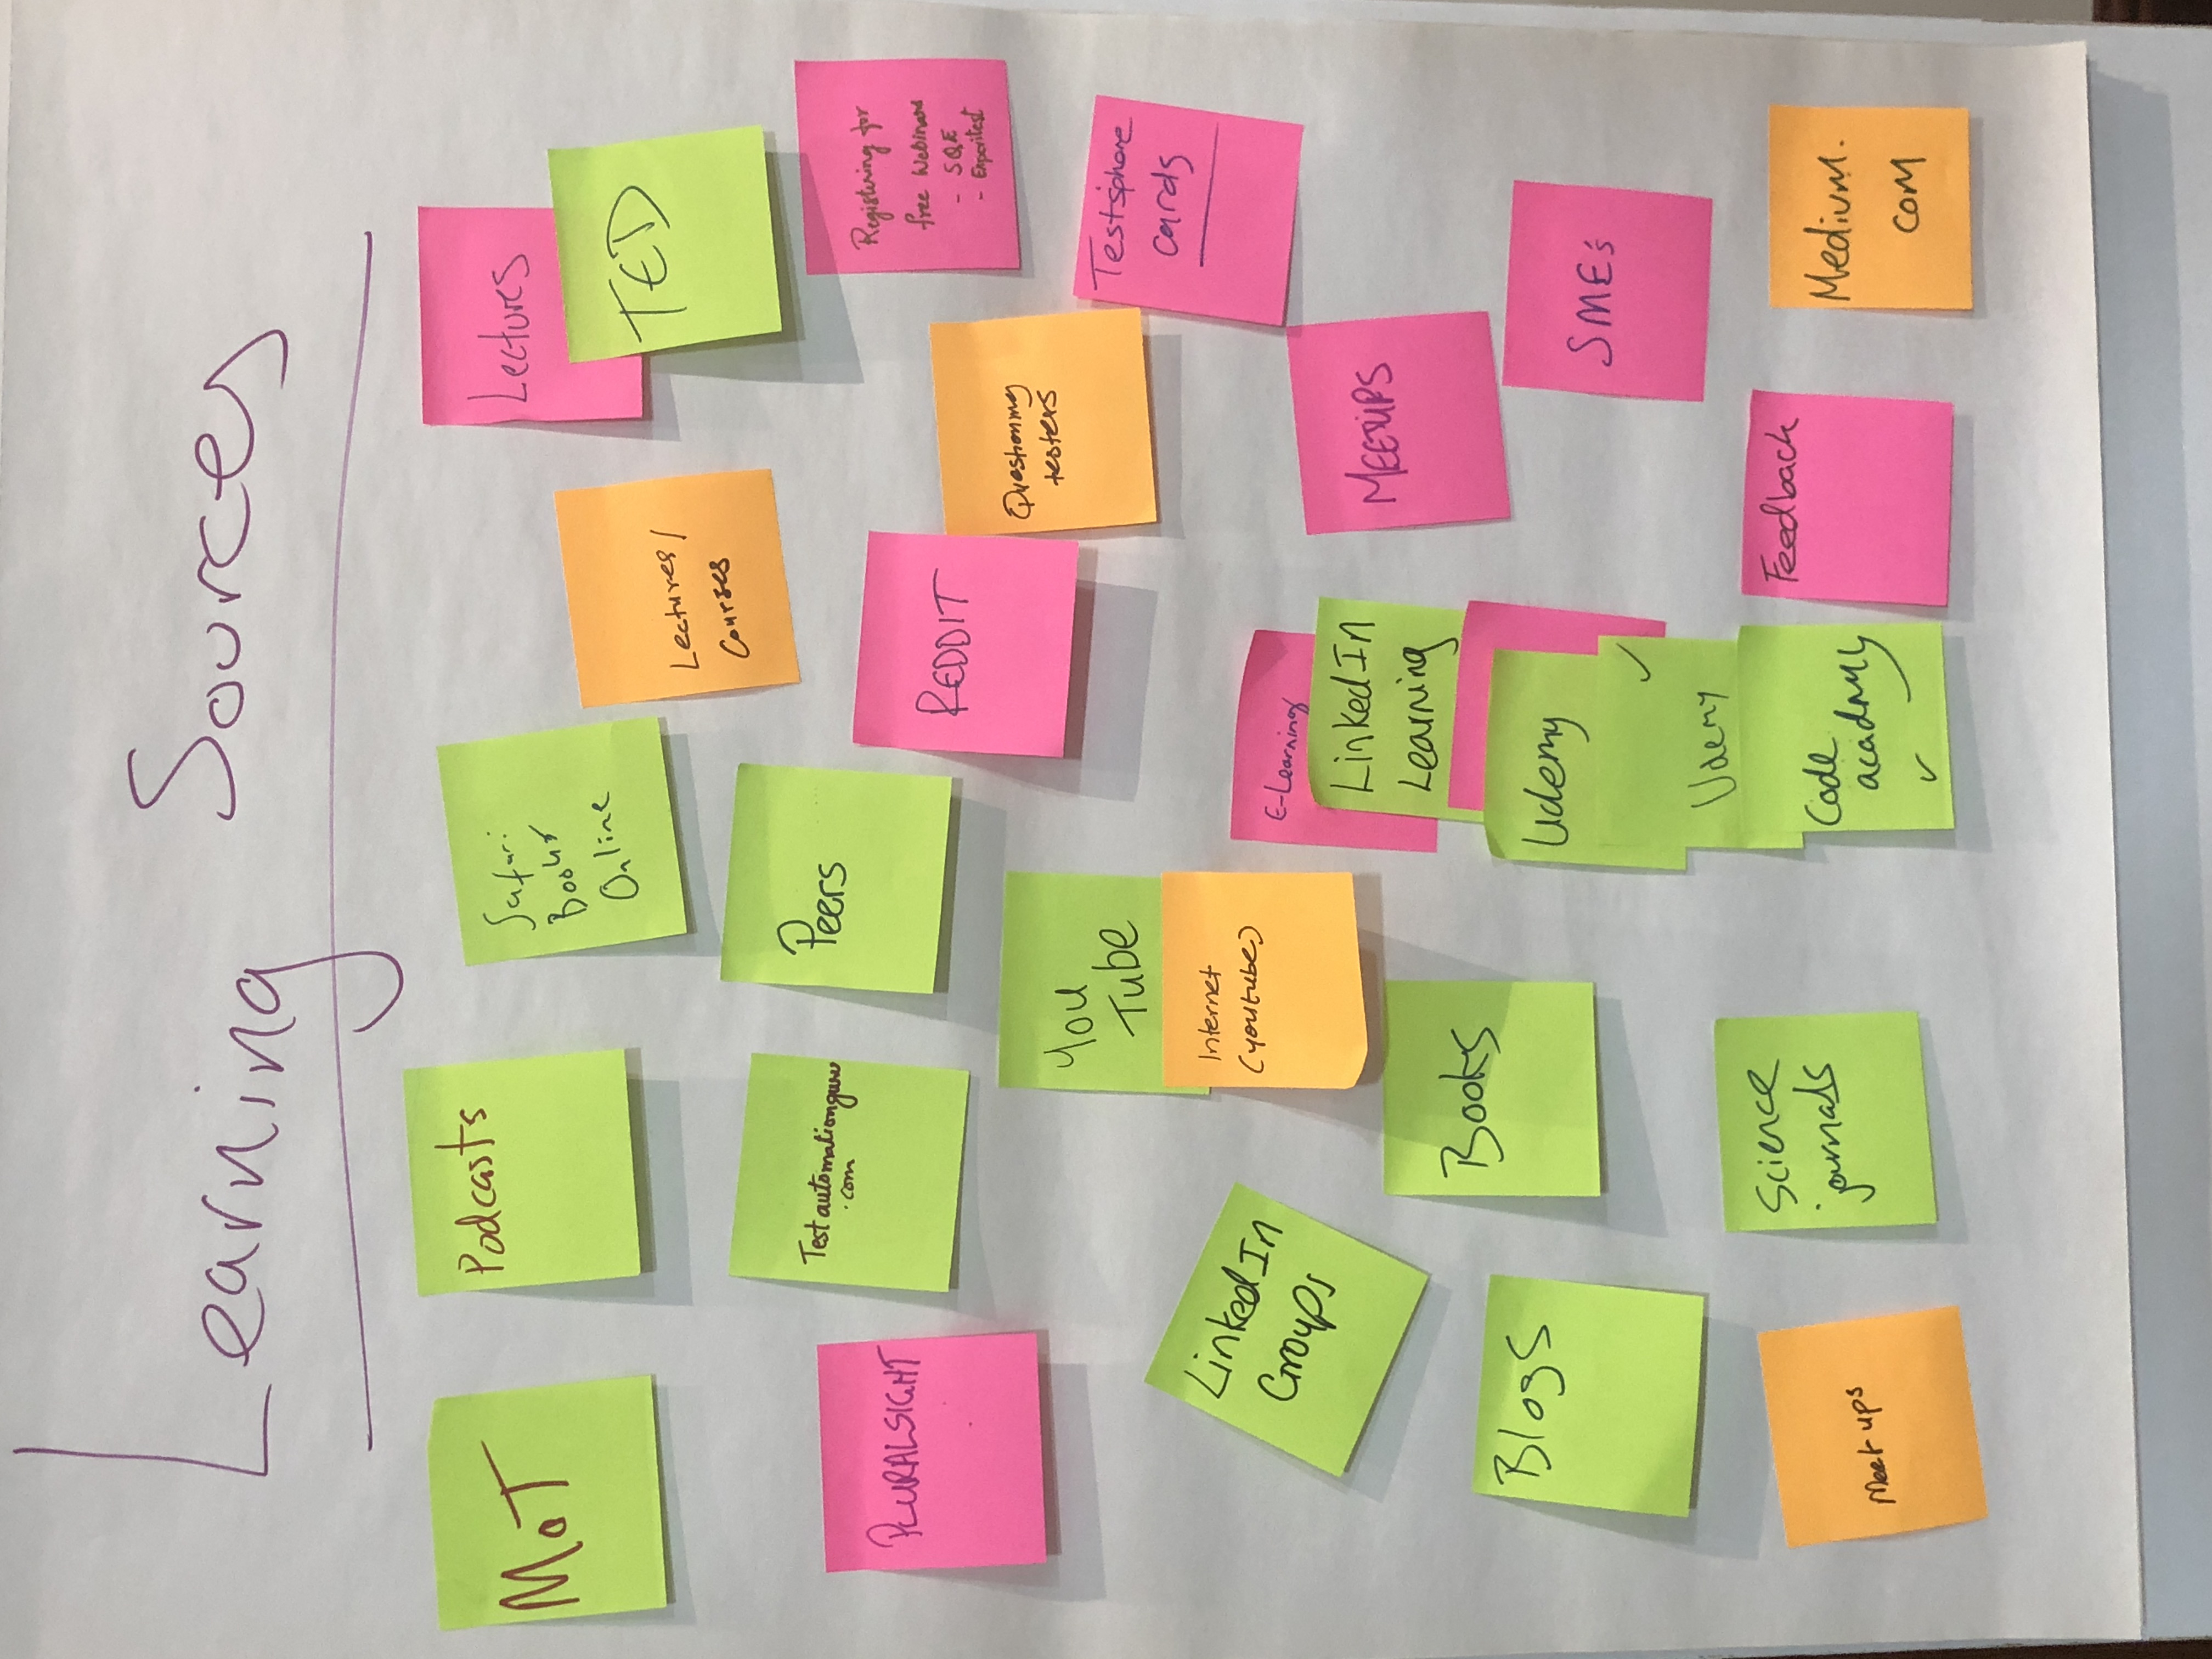 Learning Sources
MoT
Podcasts
Safari
Books
Online
Lectures/
Courses
Lectures
TED
PLURALSIGHT
Testautomationguru
.com
Peers
REDDIT
Questioning
testers
Registering for
free Webinars
- SQE
- Experitest
You
Tube
Internet
(youtube)
Testsphere
cards
LinkedIn
Groups
E-Learning
LinkedIn
Learning
MEETUPS
Books
Blogs
Udemy
✓
Udemy
SMEs
Meet ups
Science
journals
Code
academy
✓
Feedback
Medium.
com